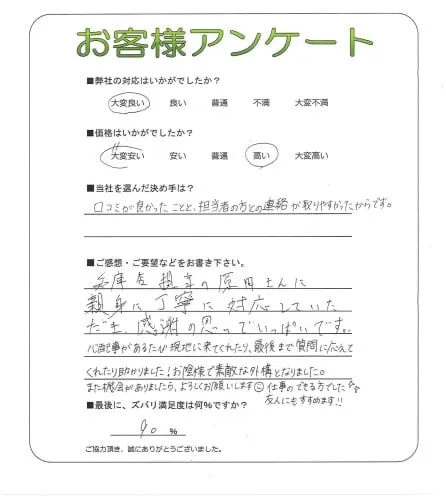 お客様アンケート
■弊社の対応はいかがでしたか?
大変良い 良い 普通 不満 大変不満
■価格はいかがでしたか?
大変安い 安い 普通 高い 大変高い
■当社を選んだ決め手は?
口コミが良かったことと、担当者の方との連絡が取りやすかったからです。
■ご感想・ご要望などをお書き下さい。
兵庫店 担当の 原田さんに
親身に丁寧に対応していた
だき、感謝の思いでいっぱいです。
心配事があるたび現地に来てくれたり、最後まで質問に応えて
くれたり助かりました!お陰様で素敵な外構となりました。
また機会がありましたら、よろしくお願いします☺ 仕事のできる方でした
友人にもすすめます!!
■最後に、ズバリ満足度は何%ですか?
90 %
ご協力頂き、誠にありがとうございました。